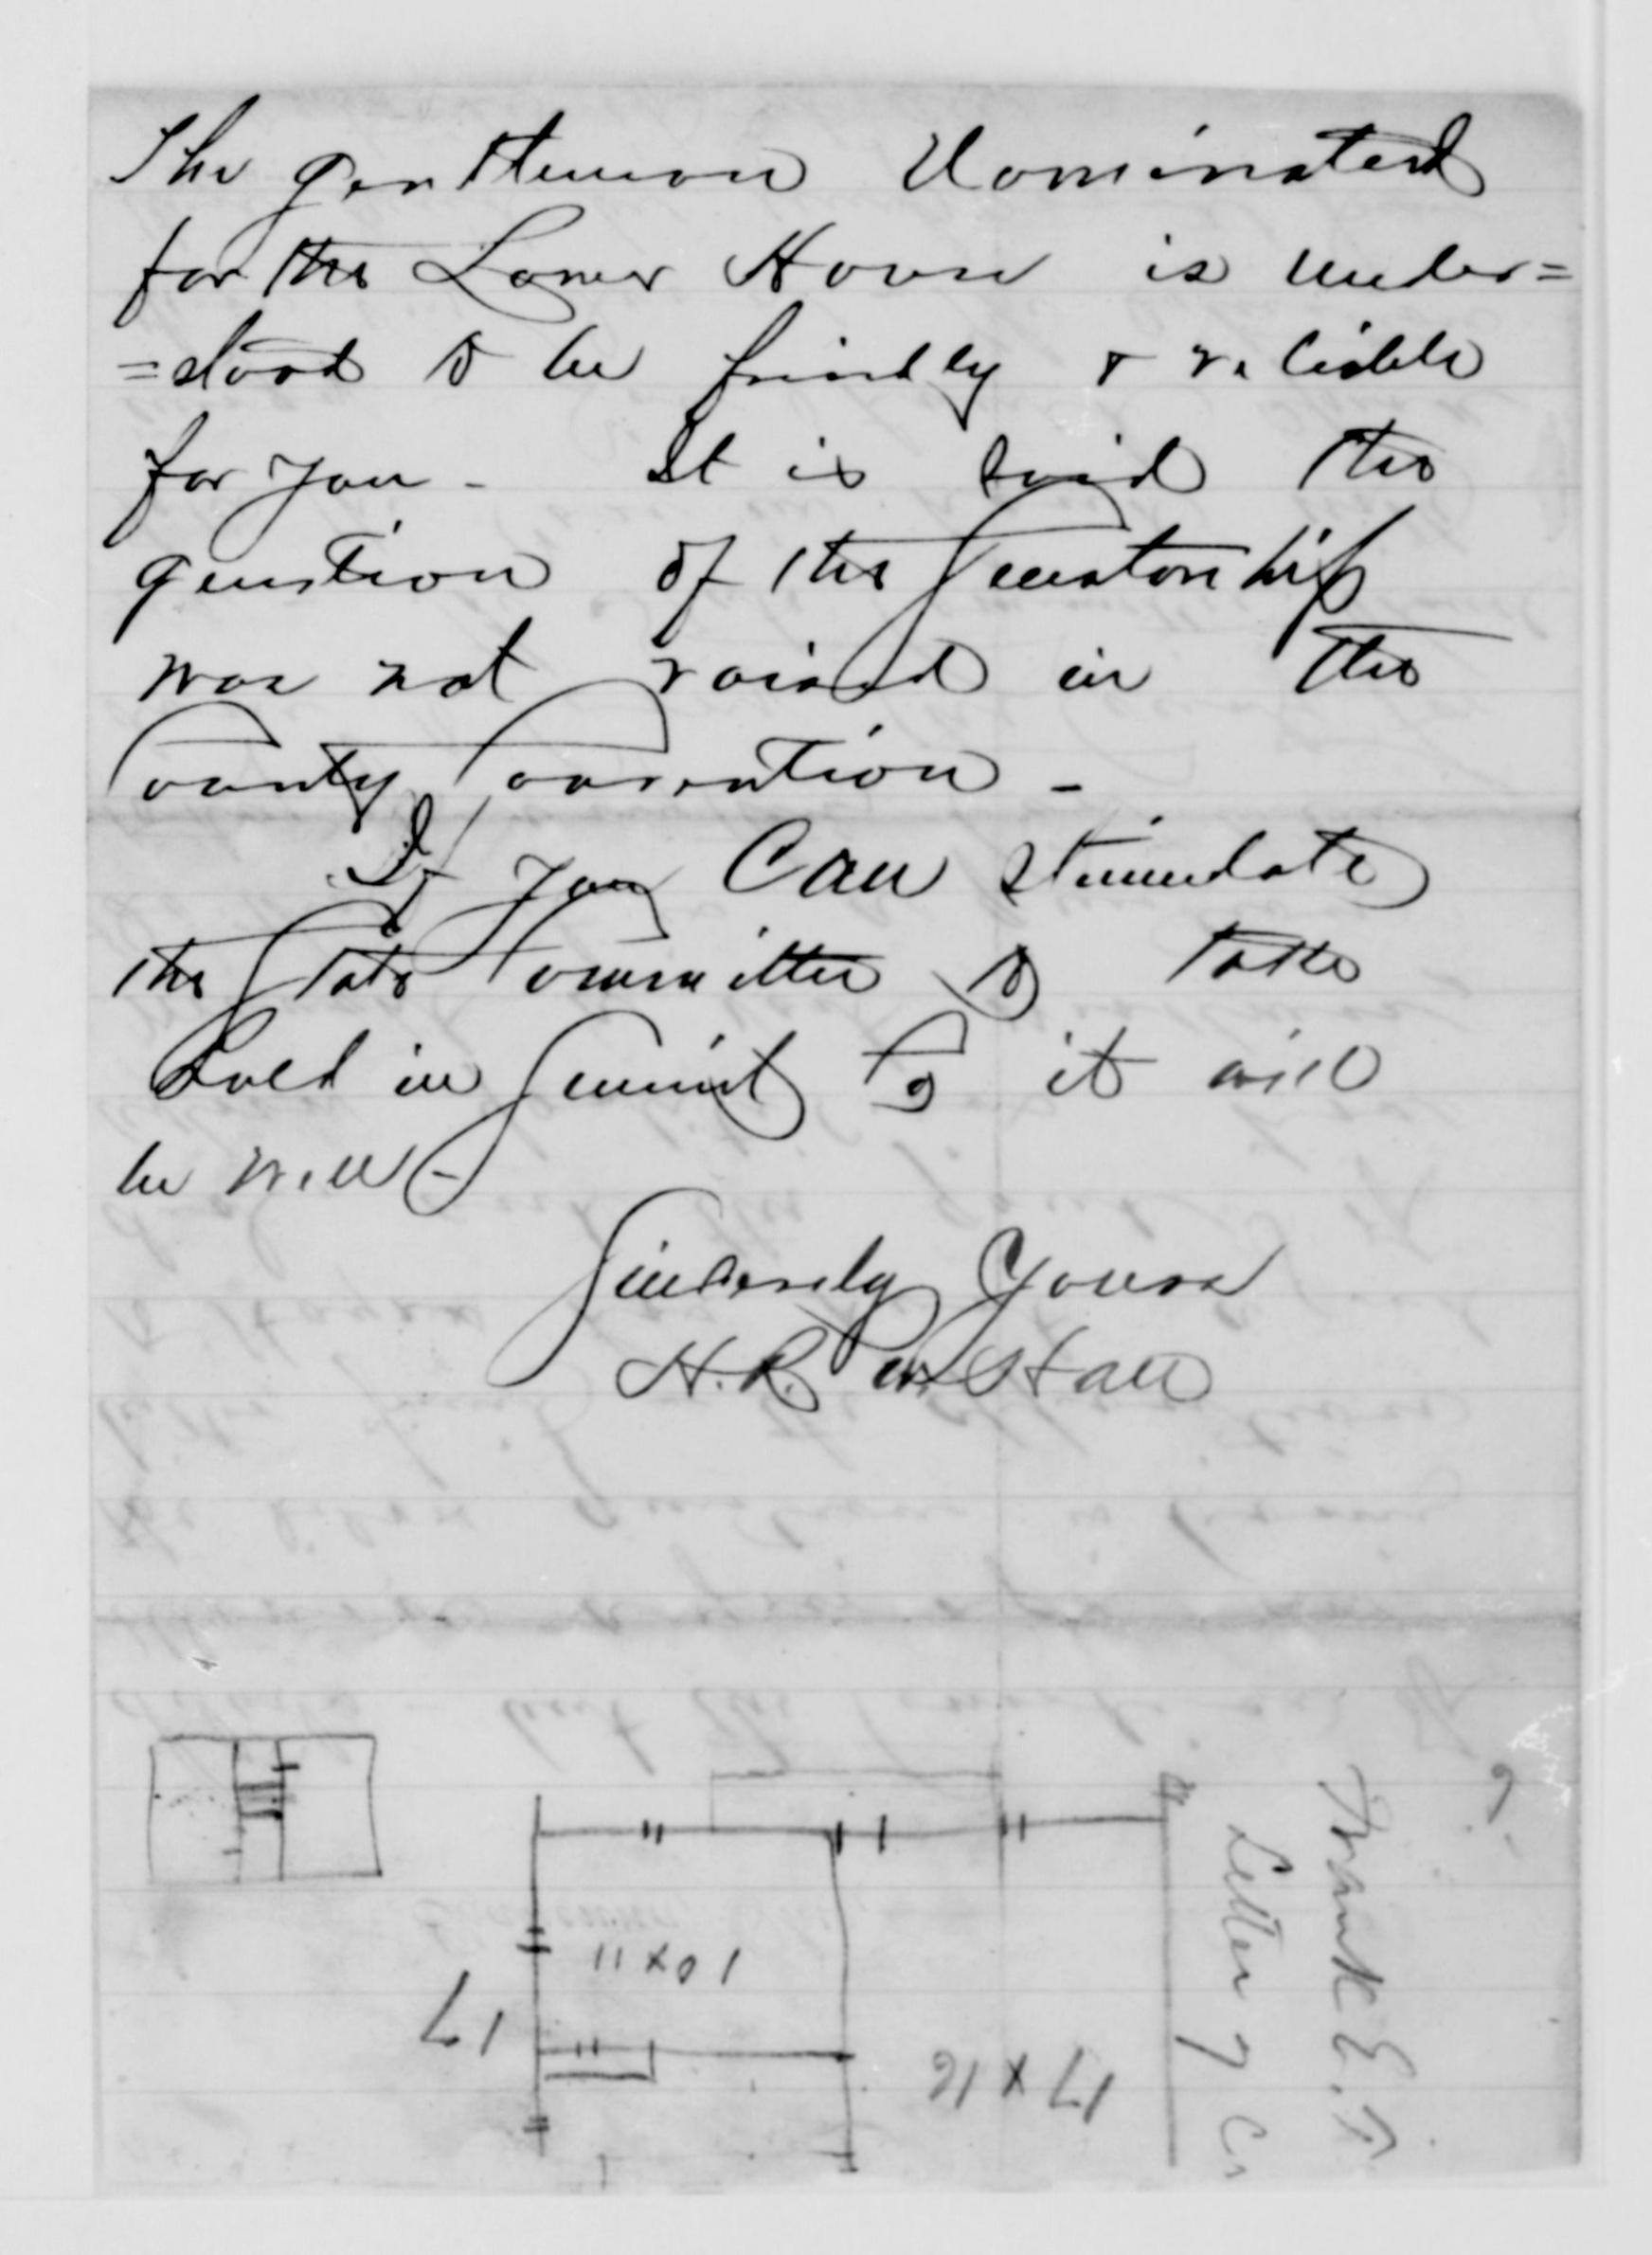 The gentleman Nominated
for the Lower House is under=
=stood to be friendly & reliable
for you - It is said the
question of the Senatorship
was not raised in the
County Convention -
If you Can stimulate
the State Committee to take
hold in Summit Co it will
be well -
Sincerely Yours
H. R. W. Hall
10x11
17
17 x 16
Frank E.
Letter 7